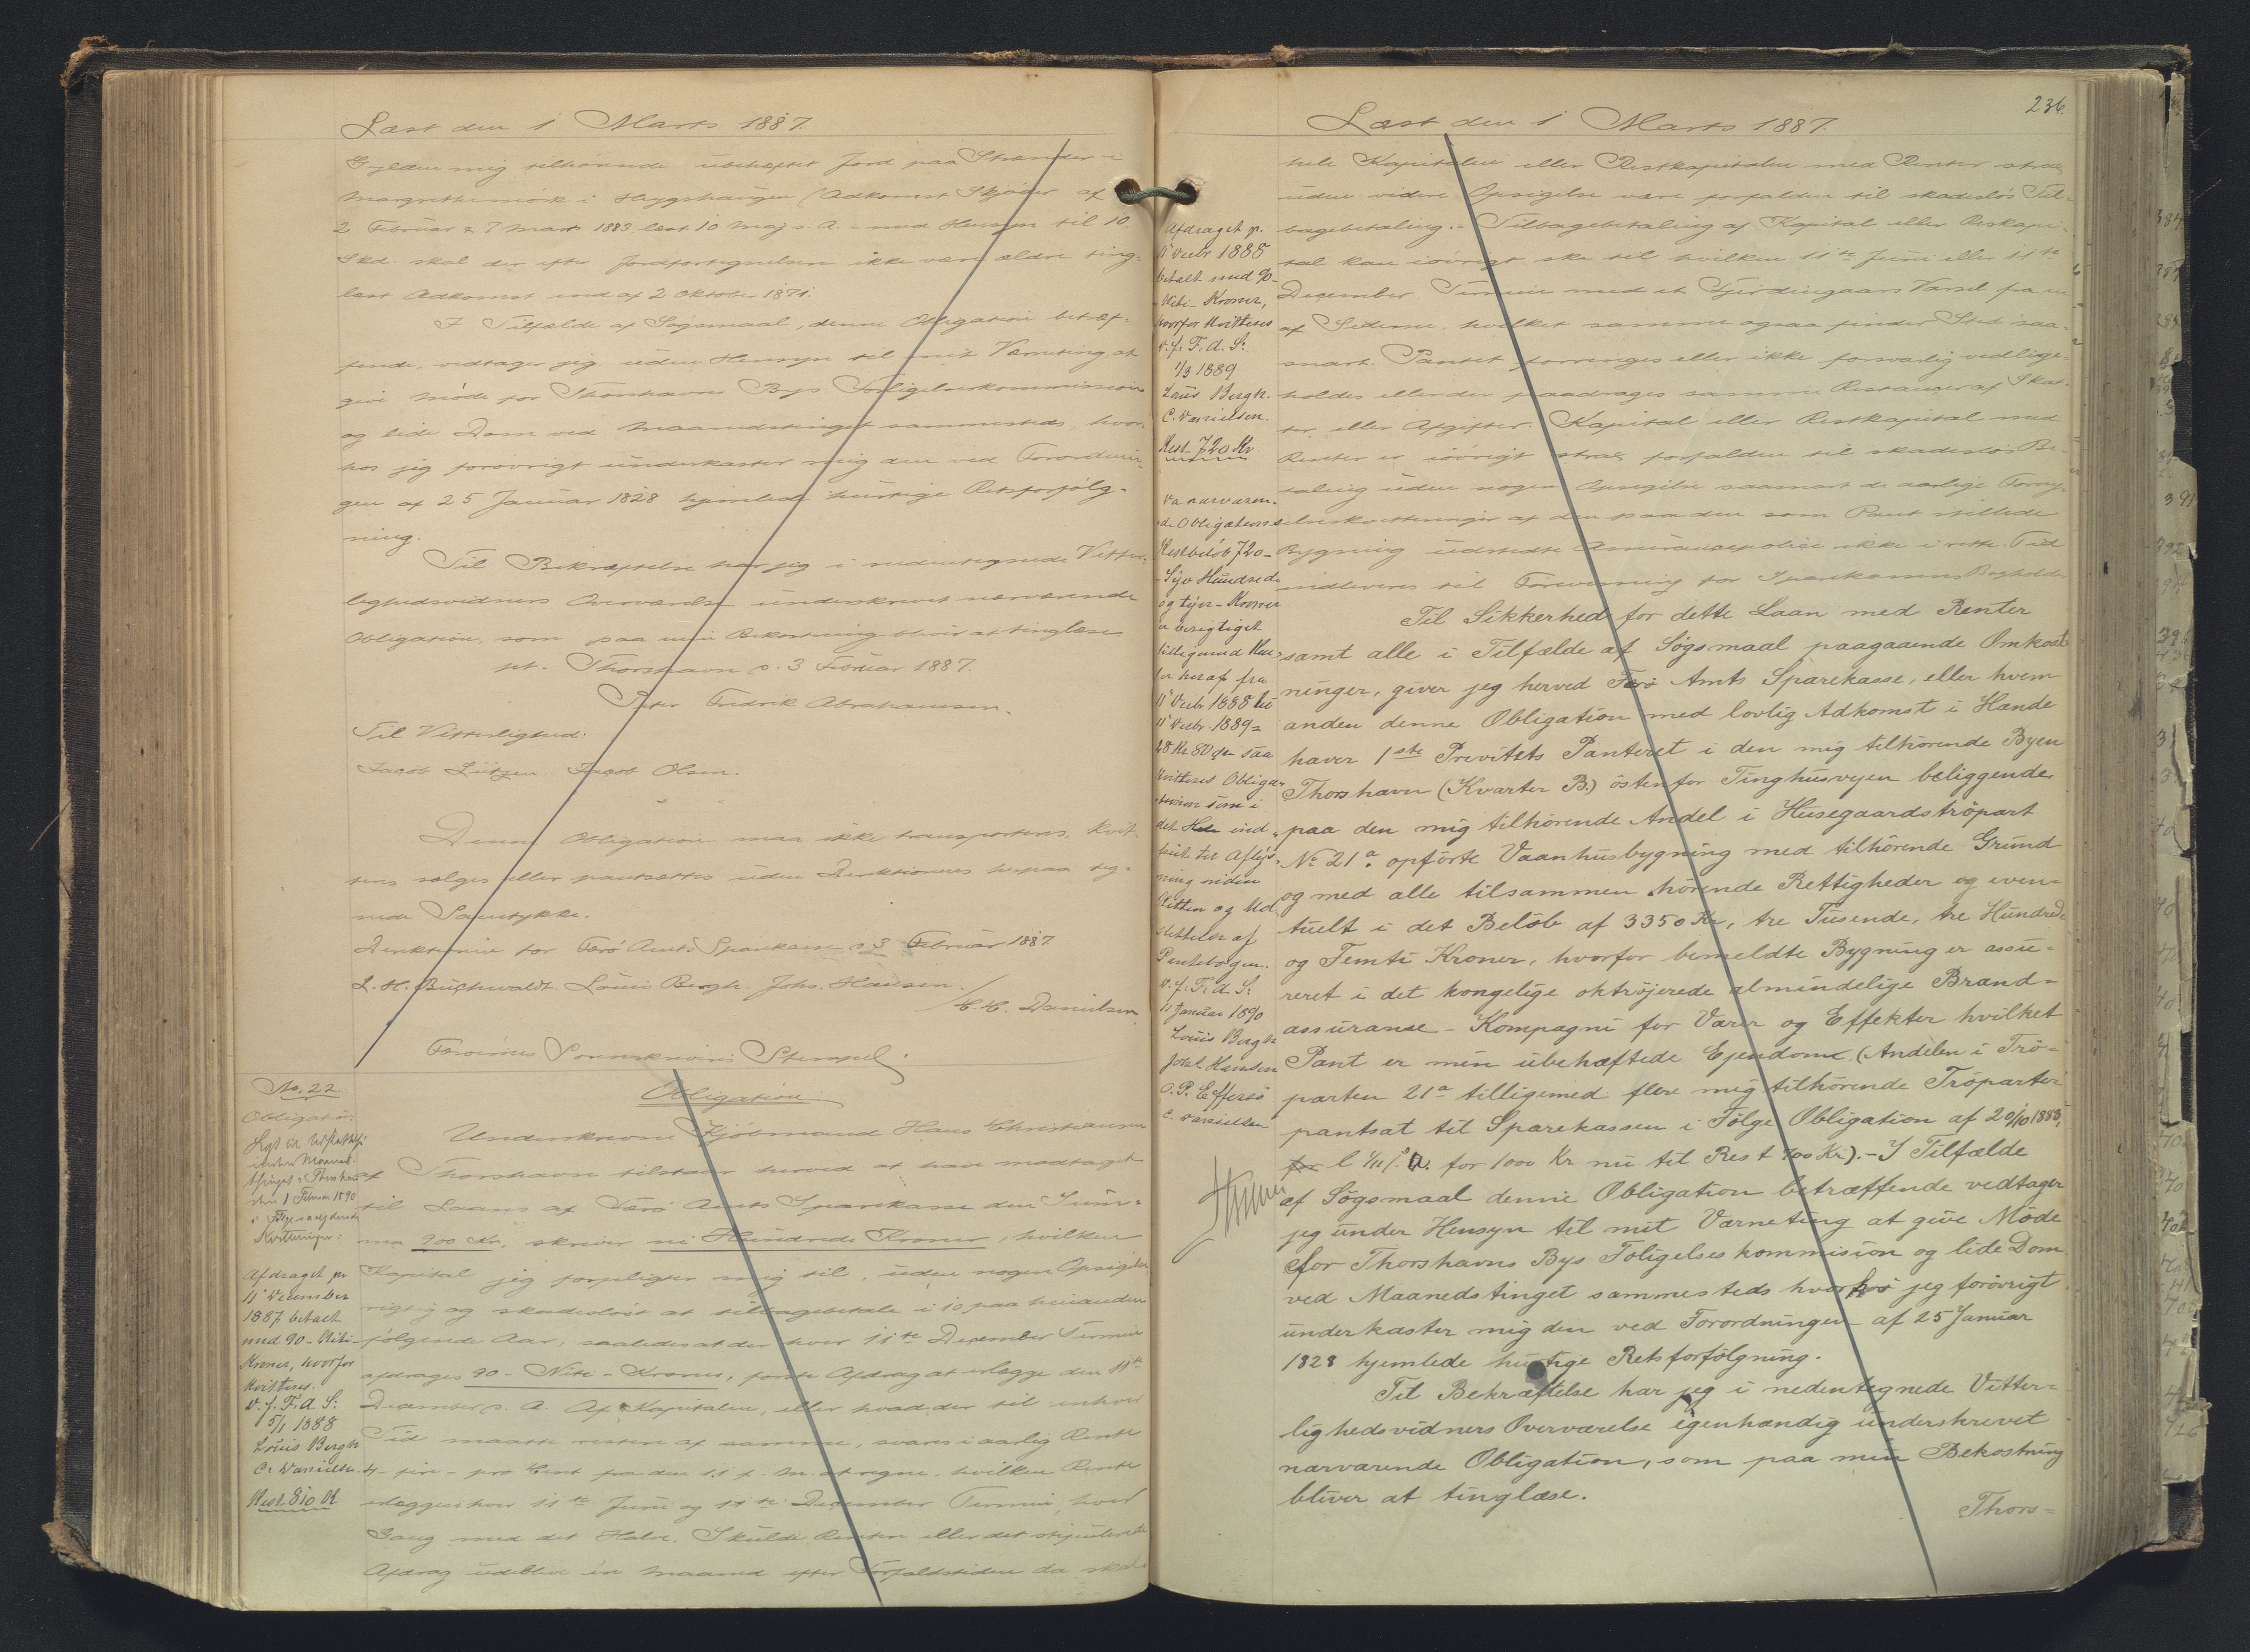 Læst den 1 Marts 1887.
Gylden mig tilhørende ubehæftet Jord paa Strænder i
Margrethemørk i Huygshaugen (Adkomst Skjøder af
2 Februar & 7 Marts 1883, læst 10 Maj s. A. - med Hensyn til 10
Skd. skal der efter Jordfortegnelsen ikke være ældre ting-
læst Adkomst end af 2 Oktober 1871.
I Tilfælde af Søgsmaal, denne Obligation betræf-
fende, vedtager jeg uden Hensyn til mit Værneting at
give Møde for Thorshavns Bys Forligelseskommission
og lide Dom ved Maanedstinget sammesteds, hvor-
hos jeg forøvrigt underkaster mig den ved Forordnin-
gen af 25 Januar 1828 hjemlede hurtige Retsforfølg-
ning.
Til Bekræftelse har jeg i nedentegnede Vitter-
lighedsvidners Overværelse underskrevet nærværende
Obligation, som paa min Bekostning bliver at tinglæse
pt. Thorshavn d. 3 Februar 1887.
Peter Fredrik Abrahamsen.
Til Vitterlighed:
Jacob Lützen. Jacob Olsen.
Denne Obligation maa ikke transporteres, kvit-
teres, sælges eller pantsættes uden Direktionens herpaa teg-
nede Samtykke.
Direktionen for Færø Amts Sparekasse d. 3 Februar 1887
L. H. Buchwaldt. Louis Bergh. Johs. Hansen.
/C. C. Danielsen.
Færøernes Sorenskriveris Stempel.
No. 22
Obligation
Afdraget pr
11' December
1887 betalt
med 90 - Niti-
Kroner, hvorfor
kvitteres.
v. f. F. A. S:
5/1 1888
Louis Bergh
C. Danielsen.
Rest 810 Kr
Obligation
Underskrevne Kjøbmand Hans Christiansen
af Thorshavn tilstaar herved at have modtaget
til Laans af Færø Amts Sparekasse den Sum-
ma 900 Kr., skriver ni Hundrede Kroner, hvilken
Kapital jeg forpligter mig til, uden nogen Opsigelse
rigtig og skadesløst at tilbagebetale i 10 paa hinanden
følgende Aar, saaledes at der hver 11te December Termin
afdrages 90 - Niti - Kroner, første Afdrag at erlægge den 11te
December d. A. Af Kapitalen, eller hvad der til enhver
Tid maatte restere af samme, svares i aarlig Rente
4 - fire - pro Cent fra den 11 f. M. at regne, hvilken Rente
erlægges hver 11te Juni og 11te December Termin, hver
Gang med det Halve. Skulde Renten eller det stipulerede
Afdrag udeblive en Maaned efter Forfaldstiden da skal
236.
Læst den 1 Marts 1887.
hele Kapitalen eller Restkapitalen med Renter strax
uden videre Opsigelse være forfalden til skadesløs Til-
bagebetaling. - Tilbagebetaling af Kapital eller Reskapi-
tal kan iøvrigt ske til hvilken 11te Juni eller 11te
December Termin med et Fjerdingaars Varsel fra en
af Siderne, hvilket samme ogsaa finder Sted saa-
snart Pantet forringes eller ikke forsvarlig vedlige-
holdes eller der paadrages samme Restancer af Skat-
ter eller Afgifter. Kapital eller Restkapital med
Renter er iøvrigt strax forfalden til skadesløs Be-
taling uden nogen Opsigelse saasnart de aarlige Forny-
elseskvitteringer af den paa den som Pant stillede
Bygning udstedte Assurancepolice ikke i rette Tid
indleveres til Forevisning for Sparekassens Bogholder
Til Sikkerhed for dette Laan med Renter
samt alle i Tilfælde af Søgsmaal paagaaende Omkost-
ninger, giver jeg herved Færø Amts Sparekasse, eller hvem
anden denne Obligation med lovlig Adkomst i Hænde
haver 1ste Prioritets Panteret i den mig tilhørende Byen
Thorshavn (Kvarter B.) østenfor Tinghusvejen beliggende
paa den mig tilhørende Andel i Husegaardstrøpart
No 21a. opførte Vaanhusbygning med tilhørende Grund
og med alle tilsammen hørende Rettigheder og even-
tuelt i det Beløb af 3350 Kr, tre Tusende, tre Hundrede
og Femti Kroner, hvorfor bemeldte Bygning er assu-
reret i det kongelige oktrojerede almindelige Brand-
assuranse - Kompagni for Varer og Effekter hvilket
Pant er min ubehæftede Ejendom, (Andelen i Trø-
parten 21a tilligemed flere mig tilhørende Trøparter
pantsat til Sparekassen i Følge Obligation af 20/10 1883,
l 1/11 s. A. for 1000 Kr nu til Rest 700 Kr). - I Tilfælde
af Søgsmaal denne Obligation betræffende vedtager
jeg under Hensyn til mit Værneting at give Møde
for Thorshavns Bys Foligelseskommision og lide Dom
ved Maanedstinget sammesteds hvorhos jeg forøvrigt
underkaster mig den ved Forordningen af 25 Januar
1828 hjemlede hurtige Retsforfølgning.
Til Bekræftelse har jeg i nedentegnede Vitter-
lighedsvidners Overværelse egenhændig underskrevet
nærværende Obligation, som paa min Bekostning
bliver at tinglæse.
Thors=
Afdraget pr.
11' Decbr 1888
betalt med 90-
Niti - Kroner,
hvorfor kvitteres
v. f. F. A. S:
1/3 1889
Louis Bergh.
C. Danielsen.
Rest 720 Kr
Da nærværen-
de Obligations
Restbeløb 720-
Syv Hundrede
og tyve - Kroner
er berigtiget
tilligemed Ren-
ter heraf fra
11' Decbr 1888 til
11' Decbr 1889 =
28 Kr 80 Øre saa
kvitteres Obliga-
tionen som i
det Hele ind-
friet til Aflys-
ning
v. f. F. A. S:
11 Januar 1890
Louis Bergh
Johs. Hansen
O. P. Effersø
C. Danielsen